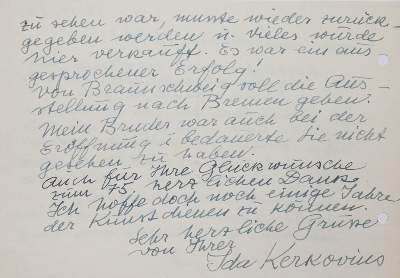 zu sehen war, musste wieder zurück-
gegeben werden u. vieles wurde
hier verkauft. Es war ein aus
gesprochener Erfolg!
Von Braunschweig soll die Aus-
stellung nach Bremen gehen.
Mein Bruder war auch bei der
Eröffnung u bedauerte Sie nicht
gesehen zu haben.
Auch für Ihre Glückwünsche
zum 75. herzlichen Dank.
Ich hoffe doch noch einige Jahre
der Kunst dienen zu können.
Sehr herzliche Grüsse
von Ihrer
Ida Kerkovius